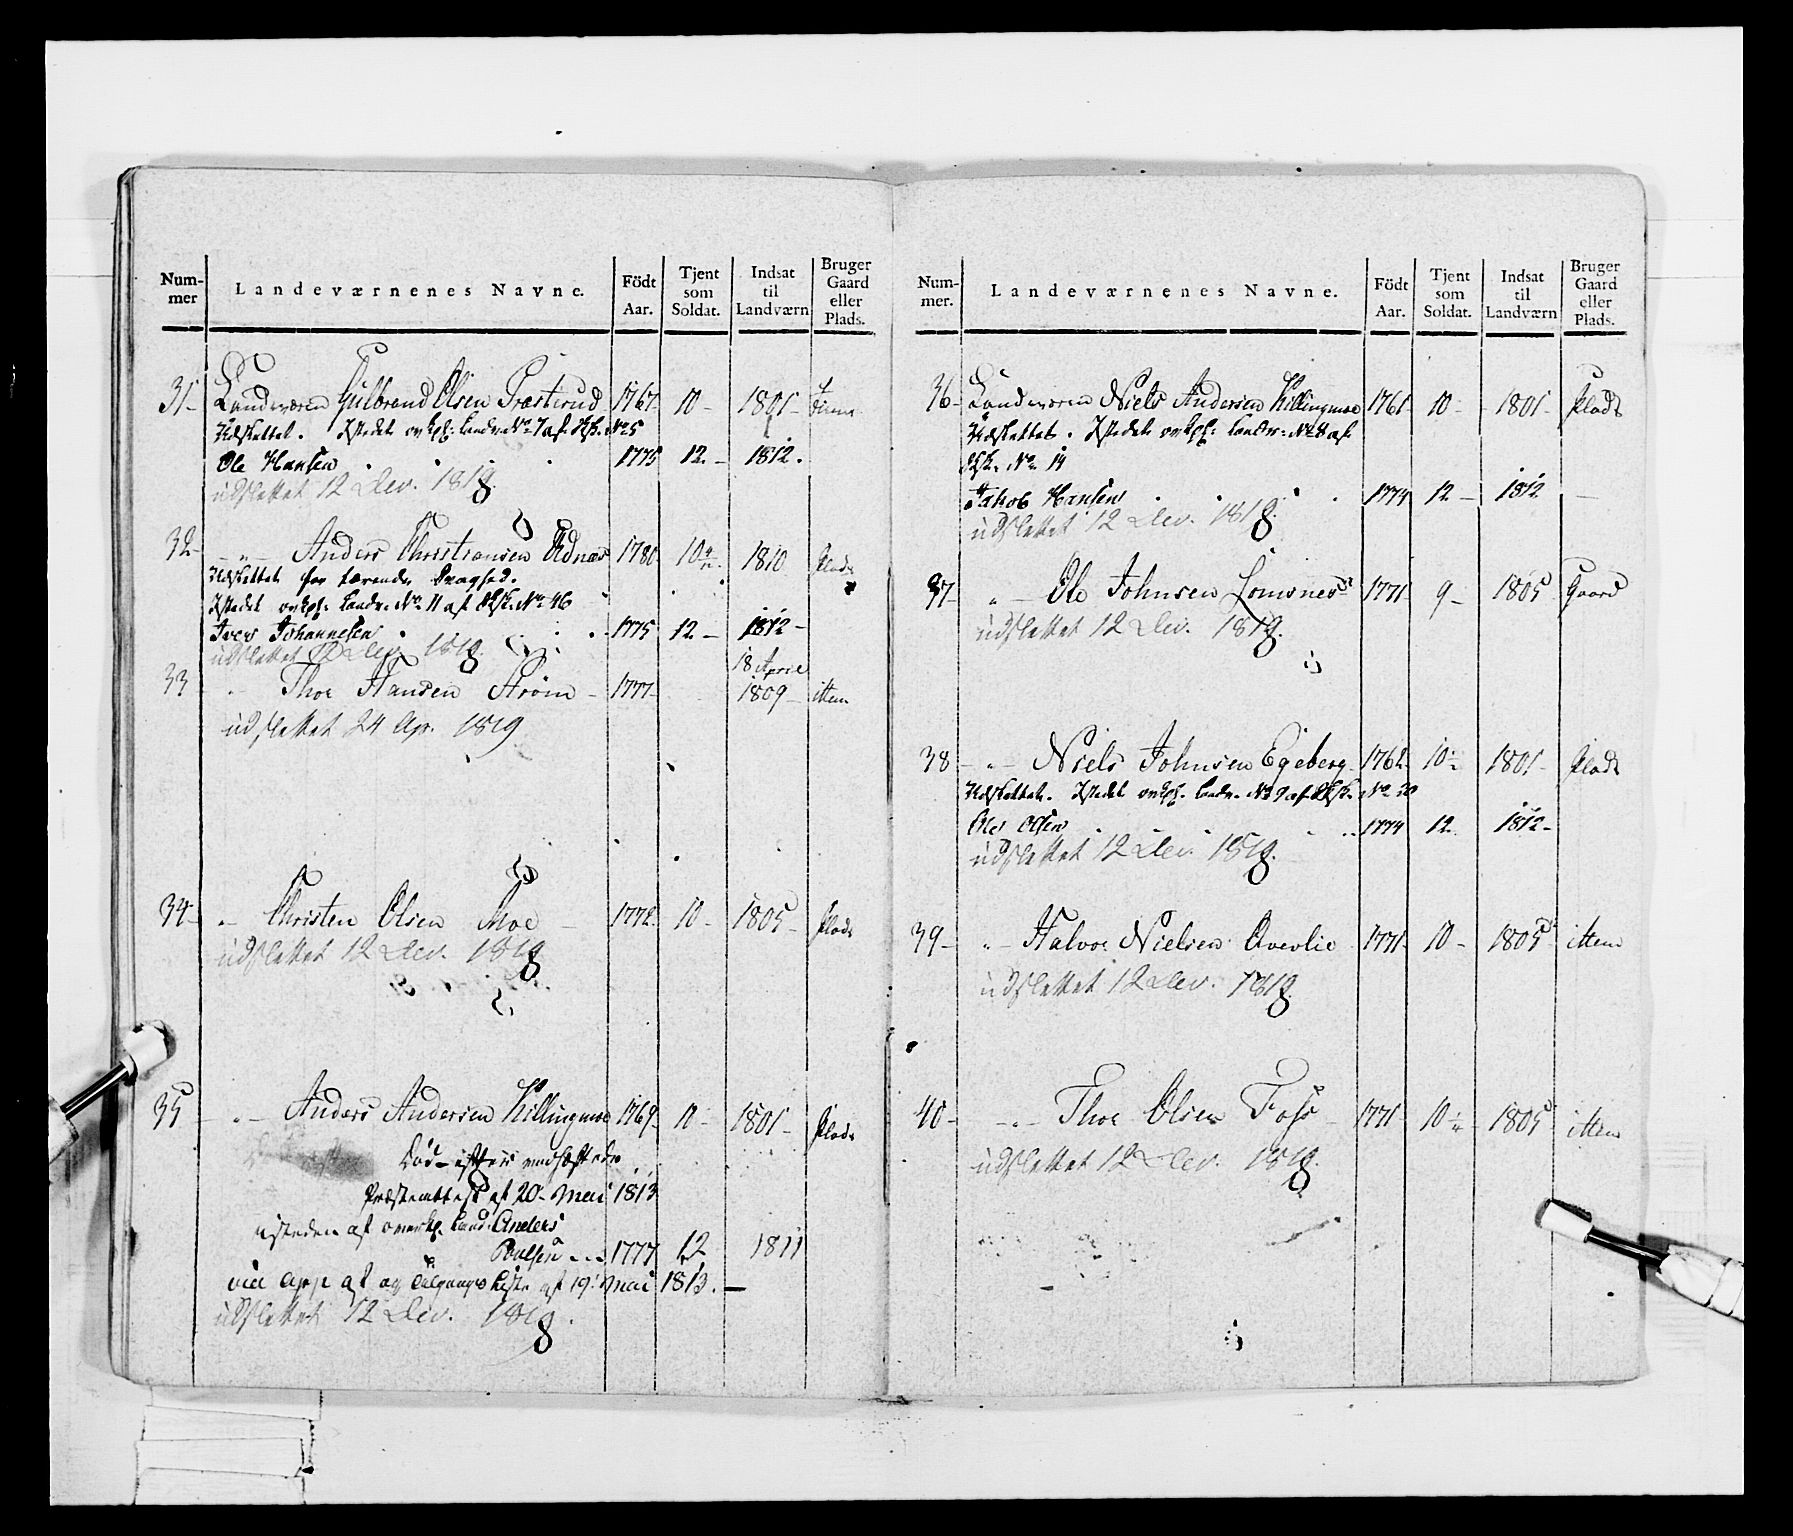 Num-
mer
Landeværnenes Navne.
Födt
Aar.
Tjent
som
Soldat.
Indsat
til
Landværn
Bruger
Gaard
eller
Plads.
31- Landeværn Gulbrand Olsen Træsterud 1767- 10- 1801-
Udslettet. Istedet ovkpl: Landv: No 7 af No 5
Ole Hansen 1775 12.- 1812.
udslettet 12 Dec. 1818.
32- -"- Anders Christiansen Adnæs 1780 10 1810 Plads
Udslettet for
Istedet ovkpl: Landv. No 11 af No 46
Iver Johannesen 1775 12.- 1812-
udslettet 12 Dec. 1818.
18 April
33 " Thor Hansen Strøm - 1777- 1809- item
udslettet 24 Apr. 1819
34- "- Christen Olsen Moe - 1772. 10- 1805- Plads
udslettet 12 Dec. 1818
35 -"- Anders Andersen Killingmoe 1769- 10- 1801- Plads
Død-
Præsteattest af 20- Mai 1813
isteden af overkp. Land: Anders
Poulsen ... 1777 12 1811
af 19. Mai 1813.-
udslettet 12 Dec. 1818.
Num-
mer.
Landeværnenes Navne.
Födt
Aar.
Tjent
som
Soldat.
Indsat
til
Landværn
Bruger
Gaard
eller
Plads.
36- Landeværn Niels Andersen Killingmoe 1761- 10- 1801- Plads
Udslettet. Istedet ovkpl: Landv: No 8 af
No 14
Jakob Hansen 1774 12- 1812 -
udslettet 12 Dec. 1818.
37- "- Ole Johnsen Lomsnes 1771- 9- 1805 Gaard
udslettet 12 Dec. 1818.
38 -"- Niels Johnsen Egeberg- 1762- 10- 1801- Plads
Udslettet. Istedet ovkpl. Landv. No 9 af No 30
Ole Olsen 1774 12. 1812-
udslettet 12 Dec. 1818.
39- "- Halvor Nielsen Qvevlie 1771- 10- 1805 item
udslettet 12 Dec. 1818.
40- -"- Thor Olsen Foss - 1771- 10- 1805 item
udslettet 12 Dec. 1818.